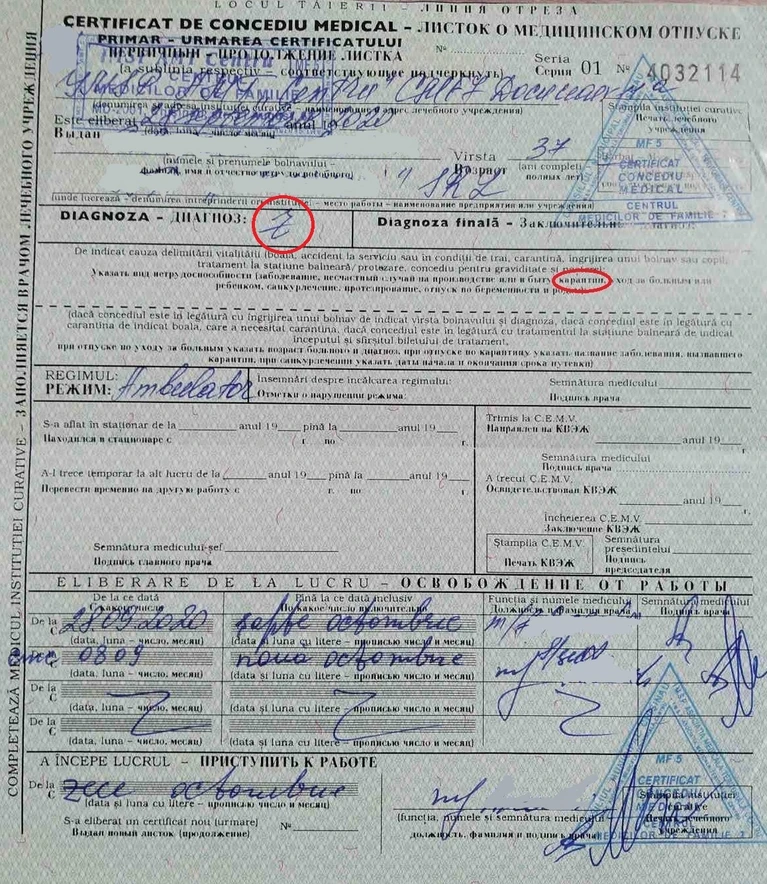 LOCUL TĂIERII – ЛИНИЯ ОТРЕЗА
CERTIFICAT DE CONCEDIU MEDICAL – ЛИСТОК О МЕДИЦИНСКОМ ОТПУСКЕ
PRIMAR – URMAREA CERTIFICATULUI №
ПЕРВИЧНЫЙ – ПРОДОЛЖЕНИЕ ЛИСТКА
(a sublinia respectiv – соответствующее подчеркнуть)
Seria
Серия 01 № 4032114
MEDICILOR DE FAMILIE
Este eliberat 2020
Выдан (data, luna – число, месяц)
Ștampila instituției curative
Печать лечебного учреждения
MF 5
CERTIFICAT
CONCEDIU
MEDICAL
CENTRUL
MEDICILOR DE FAMILIE 7
(numele și prenumele bolnavului –
фамилия, имя и отчество нетрудоспособного)
Vîrsta 37
Возраст (ani compleți
полных лет)
" SRL
(unde lucrează – denumirea întreprinderii ori instituției – место работы – наименование предприятия или учреждения)
DIAGNOZA – ДИАГНОЗ: Z
Diagnoza finală –
De indicat cauza delimitării vitalității (boala, accident la serviciu sau în condiții de trai, carantină, îngrijirea unui bolnav sau copil,
tratament la stațiune balneară/protezare, concediu pentru graviditate și
Указать вид нетрудоспособности (заболевание, несчастный случай на производстве или в быту, карантин, уход за больным или
ребенком, санкурлечение, протезирование, отпуск по беременности и
(dacă concediul este în legătură cu îngrijirea unui bolnav de indicat vîrsta bolnavului și diagnoza, dacă concediul este în legătură cu
carantina de indicat boala, care a necesitat carantina, dacă concediul este în legătură cu tratamentul la stațiune balneară de indicat
începutul și sfîrșitul biletului de tratament.
при отпуске по уходу за больным указать возраст больного и диагноз, при отпуске по карантину указать название заболевания, вызвавшего
карантин, при санкурлечении указать даты начала и окончания срока путевки)
REGIMUL: Ambulator
РЕЖИМ:
Însemnări despre încălcarea regimului:
Отметки о нарушении режима:
Semnătura medicului
Подпись врача
S-a aflat în staționar de la anul 19 pînă la anul 19
Находился в стационаре с г. по г.
Trimis la C.E.M.V. anul 19
Направлен на КВЭЖ г.
A-l trece temporar la alt lucru de la anul 19 pînă la anul 19
Перевести временно на другую работу с г. по г.
Semnătura medicului
Подпись врача
A trecut C.E.M.V.
Освидетельствован КВЭЖ
anul 19 г.
Încheierea C.E.M.V.
Заключение КВЭЖ
Semnătura medicului-șef
Подпись главного врача
Ștampila C.E.M.V.
Печать КВЭЖ
Semnătura președintelui
Подпись председателя
ELIBERARE DE LA LUCRU – ОСВОБОЖДЕНИЕ ОТ РАБОТЫ
De la ce dată
С какого числа
Pînă la ce dată inclusiv
По какое число включительно
Funcția și numele medicului
Должность и фамилия врача
Semnătura medicului
Подпись врача
De la
С
28.09.2020 șapte octombrie m/f
(data, luna – число, месяц) (data și luna cu litere – прописью число и месяц)
De la
С
nouă octombrie
(data, luna – число, месяц) (data și luna cu litere – прописью число и месяц)
De la
С
Z Z
(data, luna – число, месяц) (data și luna cu litere – прописью число и месяц)
De la
С
(data, luna – число, месяц) (data și luna cu litere – прописью число и месяц)
A ÎNCEPE LUCRUL – ПРИСТУПИТЬ К РАБОТЕ
De la
С
zece octombrie
(data și luna cu litere – прописью число и месяц)
S-a eliberat un certificat nou (urmare) №
Выдан новый листок (продолжение)
(funcția, numele și semnătura medicului –
должность, фамилия и подпись врача)
Ștampila instituției curative
Печать лечебного учреждения
MF 5
CERTIFICAT
CONCEDIU
MEDICAL
CENTRUL
MEDICILOR DE FAMILIE 7
COMPLETEAZĂ MEDICUL INSTITUȚIEI CURATIVE – ЗАПОЛНЯЕТСЯ ВРАЧОМ ЛЕЧЕБНОГО УЧРЕЖДЕНИЯ